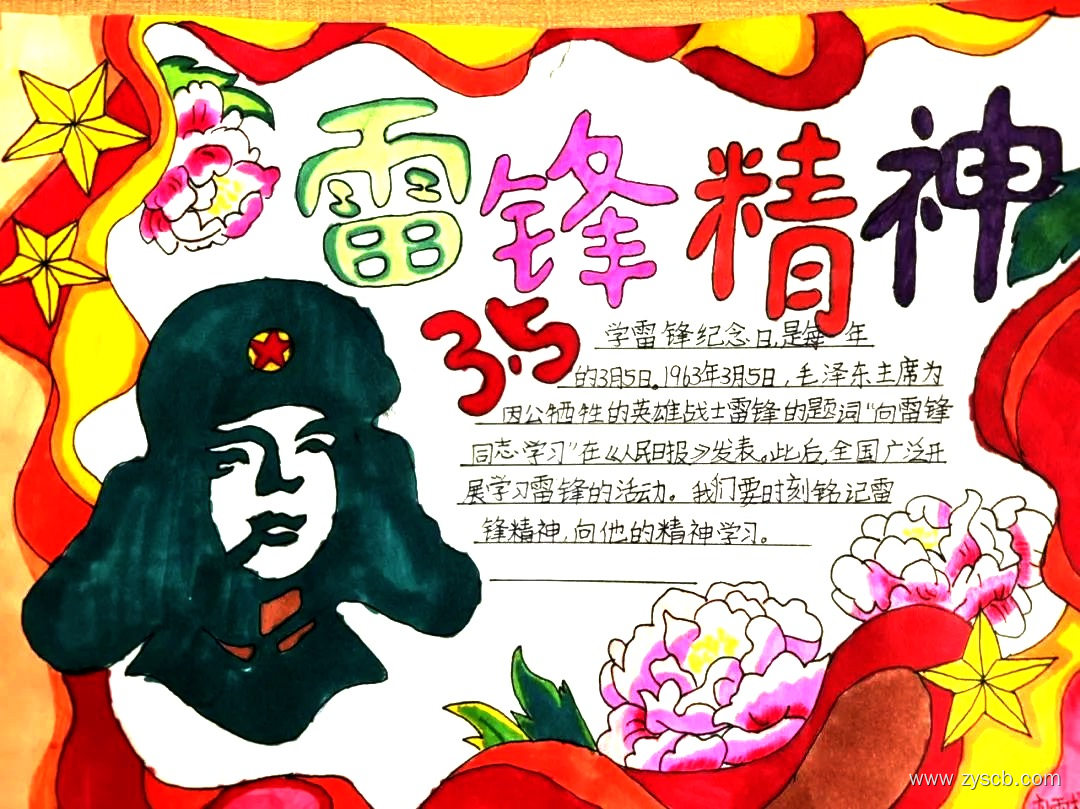 雷锋精神
3.5
学雷锋纪念日,是每一年
的3月5日。1963年3月5日,毛泽东主席为
因公牺牲的英雄战士雷锋的题词“向雷锋
同志学习”在《人民日报》发表。此后,全国广泛开
展学习雷锋的活动。我们要时刻铭记雷
锋精神,向他的精神学习。
www.zyscb.com